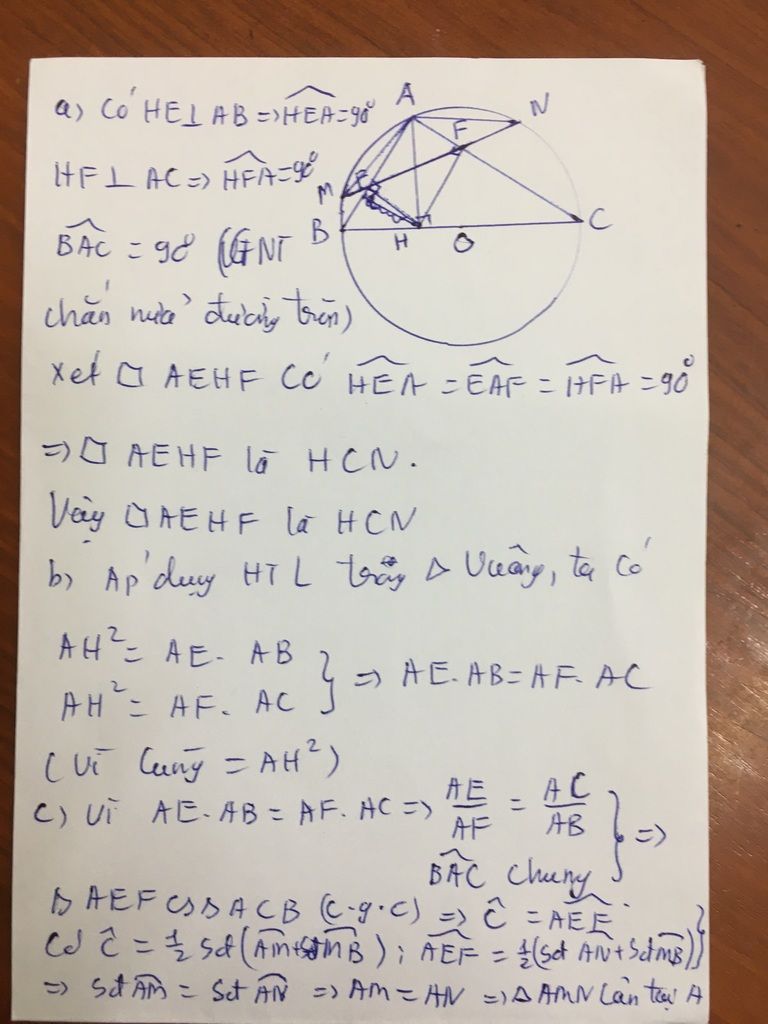 a) Có HE⊥AB => HEA = 90°
HF⊥AC => HFA = 90°
BAC = 90° (GNT
chắn nửa đường tròn)
A
N
F
M
E
B
H
O
C
Xét □ AEHF Có HEA = EAF = HFA = 90°
=> □ AEHF là HCN.
Vậy □AEHF là HCN
b) Áp dụng HTL trong △ Vuông, ta Có
AH² = AE. AB
AH² = AF. AC } => AE.AB = AF. AC
(Vì Cùng = AH²)
c) Vì AE.AB = AF.AC => AE/AF = AC/AB
BAC Chung } =>
△ AEF ∽ △ ACB (c.g.c) => Ĉ = AEF
Có Ĉ = ½ Sđ (AM + MB) ; AEF = ½ (Sđ AN + Sđ MB) }
=> Sđ AM = Sđ AN => AM = AN => △AMN Cân tại A